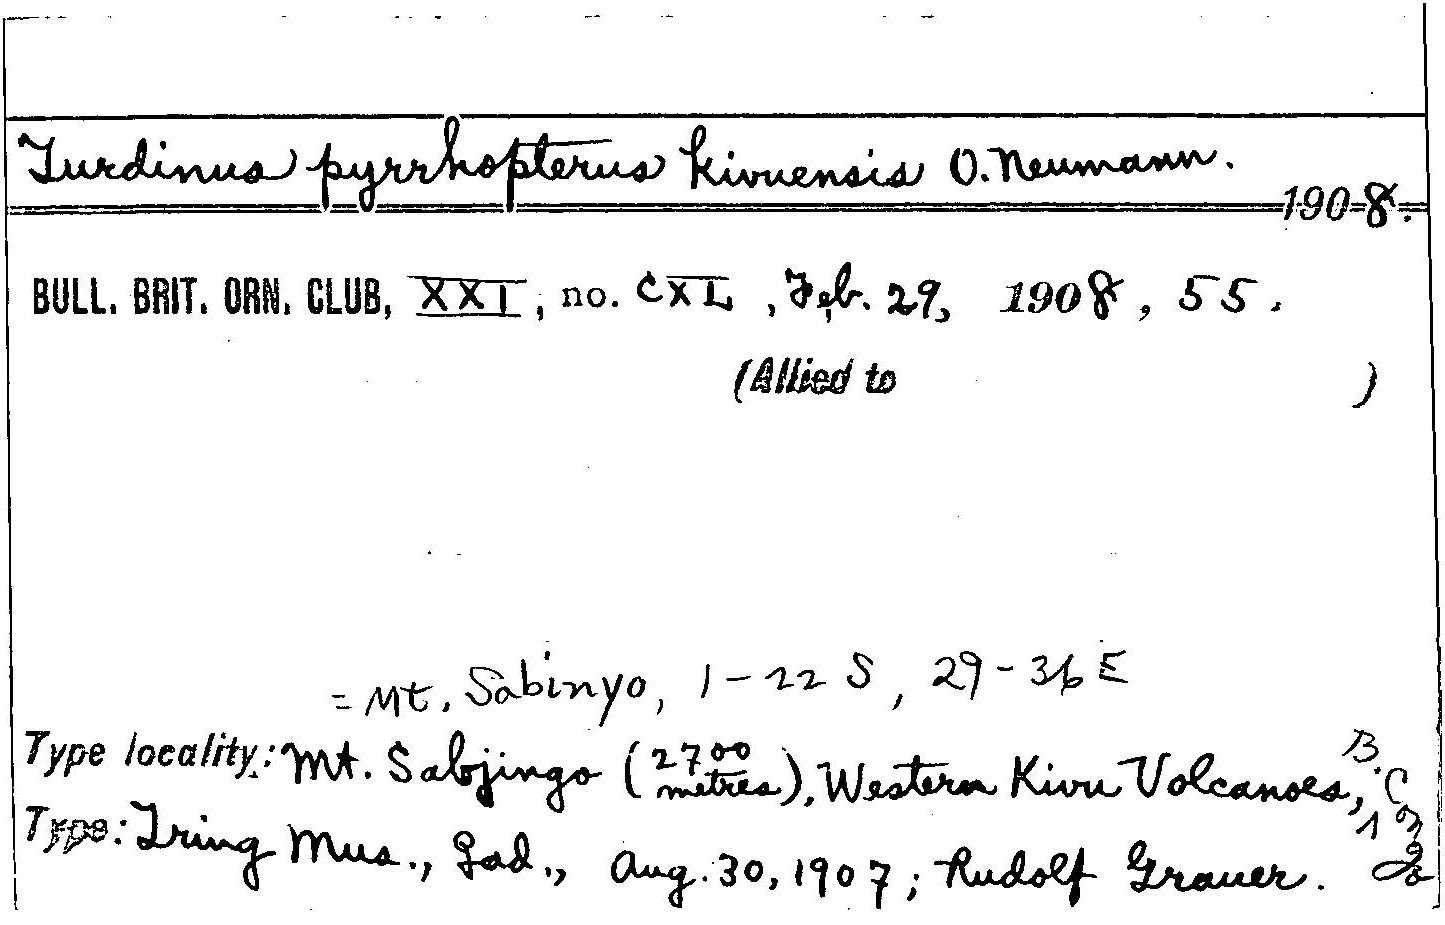 Turdinus pyrrhopterus kivuensis O. Neumann.
1908.
BULL. BRIT. ORN. CLUB, XXI, no. CXL, Feb. 29, 1908, 55.
(Allied to )
= Mt. Sabinyo, 1-22 S, 29-36 E
Type locality: Mt. Sabjingo (2700 metres), Western Kivu Volcanoes, B. Congo
Type: Tring Mus., Gad., Aug. 30, 1907; Rudolf Grauer.